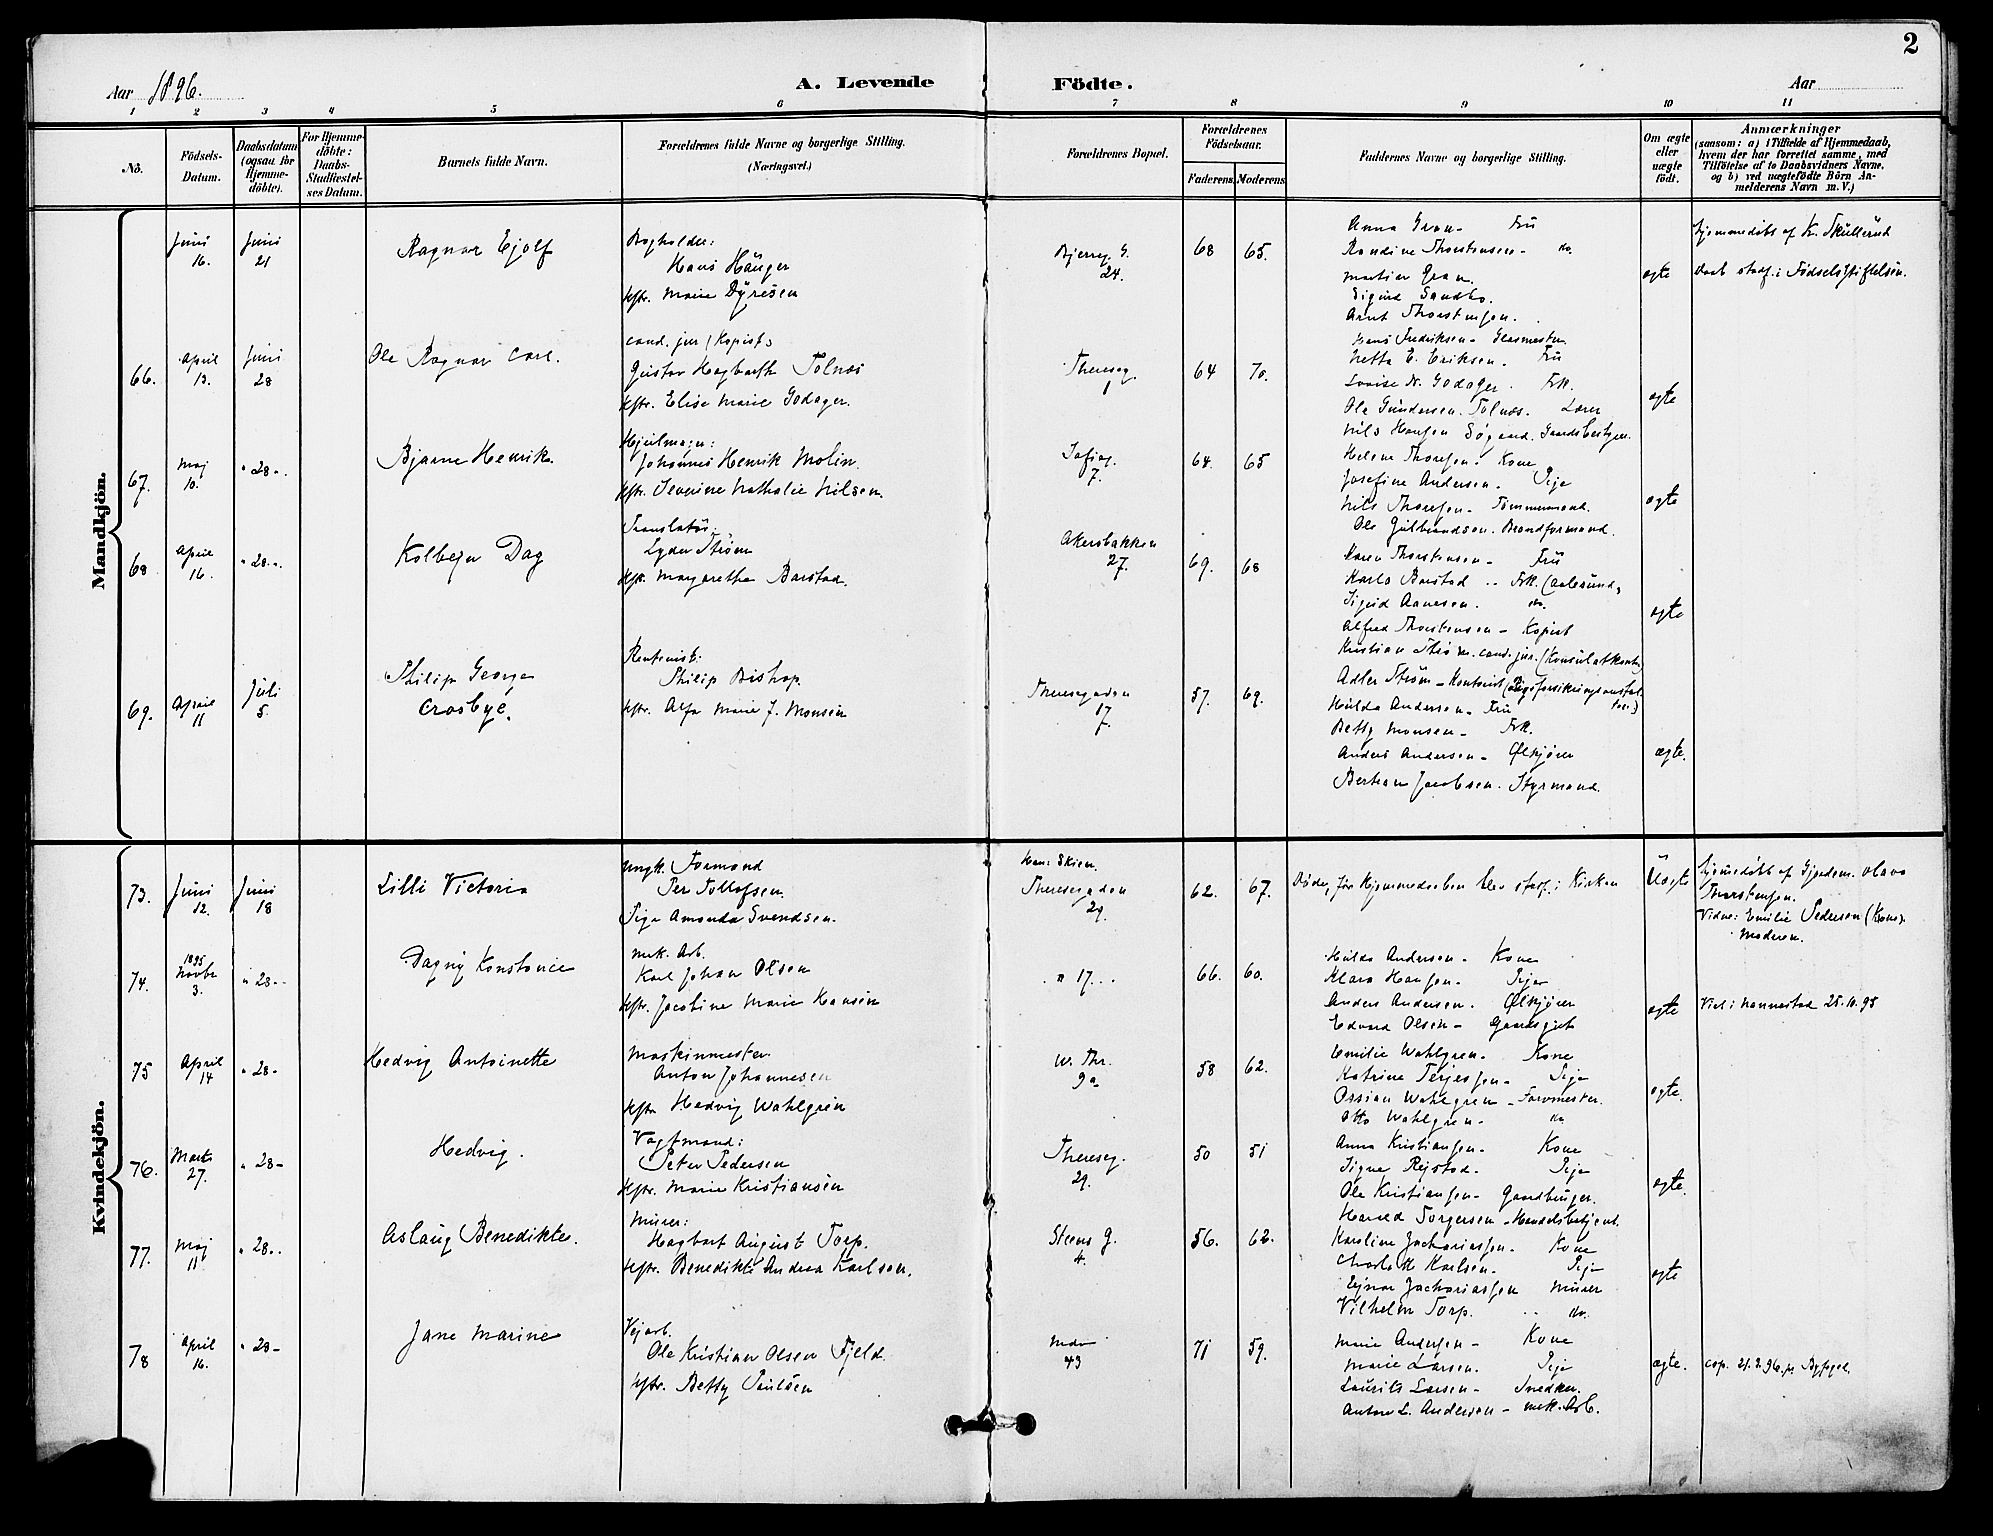 2
Aar 1896.
A. Levende Födte.
Aar
1 2 3 4 5 6 7 8 9 10 11
No.
Födsels-Datum.
Daabsdatum (ogsaa for Hjemme-döbte).
For Hjemme-döbte: Daabs-Stadfæstel-ses Datum.
Barnets fulde Navn.
Forældrenes fulde Navne og borgerlige Stilling. (Næringsvei.)
Forældrenes Bopæl.
Forældrenes Födselsaar.
Faderens. Moderens.
Faddernes Navne og borgerlige Stilling.
Om ægte eller uægte födt.
Anmærkninger
(saasom: a) i Tilfælde af Hjemmedaab,
hvem der har forrettet samme, med
Tilföielse af to Daabsvidners Navne.
og b) ved uægtefödte Börn An-
melderens Navn m. V.)
Mandkjön.
Juni 16.
Juni 21
Ragnar Ejolf
Bogholder:
Hans Hauger
Hstr. Marie Dyresen
Bjerreg. G. 24.
68 65.
Anna Gran - Fru
Randine Thorstensen - do.
Martin Gran
Sigurd Sandbo.
Arnt Thorstensen.
ægte
hjemmedøbt af K. Skullerud
Daab stadf. i Fødselsstiftelsen.
66.
April 13.
Juni 28
Ole Ragnar Carl.
cand. jur (Kopist)
Gustav Hagbarth Tolnæs
Hstr. Elise Marie Godager.
Thereseg. 1
64 70.
Hans Fredriksen - Glasmester
Netta E. Eriksen. Fru
Lovise N. Godager. Frk.
Ole Gundersen Tolnæs. Lærer
Nils Hansen Søgaard. Gaardsbestyrer.
ægte
67.
Maj 10.
" 28 "
Bjarne Henrik.
Hjulmager:
Johannes Henrik Molin.
Hstr. Severine Nathalie Nilsen.
Sofieg. 7.
64. 65
Helene Thoresen. Kone
Josefine Andersen. Pige
Nils Thoresen - Tømmermand.
Ole Gulbrandsen. Brandformand.
ægte
68
April 16.
" 28 "
Kolbejn Dag
Translatør:
Lyder Strøm
Hstr. Margarethe Barstad.
Akersbakken 27.
69. 68
Karen Thorstensen - Fru
Karla Barstad .. Frk. (Aalesund)
Sigrid Aanesen. do.
Alfred Thorstensen - Kopist
Kristian Strøm. cand. jur. (Konsulatkontor)
Adler Strøm - Kontorist
ægte
69.
April 11
Juli 5.
Philip George
Crosbye.
Rentenist:
Philip Bishop
Hstr. Alfa Marie J. Monsen
Theresegaden 17.
57. 69.
Hulda Andersen - Fru
Betty Monsen - Frk.
Anders Andersen - Ølkjører
Bertran Jacobsen. Styrmand.
ægte.
Kvindekjön.
73.
Juni 12.
Juni 18
Lilli Victoria
Ungk. Formand
Per Tollofsen
Pige Amanda Svendsen.
Han: Skien.
Theresegaden 29.
62. 67.
Døde, før Hjemmedaaben blev stadf. i Kirken
Uægte
hjemmedøbt af Gjordem. Olava
Thorstensen.
Vidne: Emilie Pedersen (Kone).
Moderen.
74.
1895
Novbr 3.
" 28 "
Dagny Konstance
mek. Arb.
Karl Johan Olsen
Hstr. Jacobine Marie Hansen
" 17. "
66. 60.
Hulda Andersen - Kone
Klara Hansen - Pige
Anders Andersen. Ølkjører
Edvard Olsen - Gaardsgut
ægte
Viet i Nannestad 25.10.95
75
April 14
" 28 -
Hedvig Antoinette
Maskinmester.
Anton Johannesen
Hstr Hedvig Wahlgren
W. Thr. 9a
58 62.
Emilie Wahlgren - Kone
Katrine Terjessen - Pige
Ossian Wahlgren - Farvmester.
Otto Wahlgren - do
ægte.
76.
Marts 27.
" 28 -
Hedvig.
Vagtmand:
Peter Pedersen
Hstr. Marie Kristiansen
Thereseg. 29.
50 51
Anna Kristiansen - Kone
Signe Rejstad. Pige
Ole Kristiansen - Gaardbruger.
Harald Torgersen - Handelsbetjent.
ægte.
77.
Maj 11
" 28 "
Aslaug Benedikte.
Murer:
Hagbart August Torp.
Hstr. Benedikte Andrea Karlsen.
Steens G. 4.
56. 62.
Karoline Zachariassen - Kone
Charlotte Karlsen. Pige
Ejnar Zachariassen Murer
Vilhelm Torp. .. do.
ægte
78
April 16.
" 28 -
Jane Marine
Vejarb.
Ole Kristian Olsen Fjeld.
Hstr. Betty Paulsen
43
71 59.
Marie Andersen - Kone
Marie Larsen. Pige
Laurits Larsen - Snedker.
Anton L. Andersen - mek. Arb.
ægte.
cop. 21.2.96. p. Byfoged.